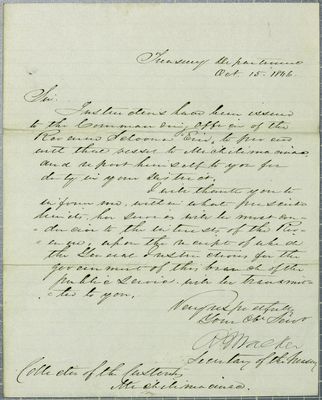 Treasury Department
Oct. 15. 1846.
Sir.
Instructions have been issued
to the Commanding Officer of the
Revenue Schooner Erie, to proceed
with that vessel to Michilimacinac,
and report himself to you for
duty in your District.
I will thank you to
inform me, within what precise
limits, her services will be most con-
ducive to the interests of the Rev-
enue, upon the receipt of which
the General Instructions for the
government of this branch of the
public service will be transmit-
ted to you.
Very respectfully
Your Obt Servt
R J Walker
Secretary of the Treasury
Collector of the Customs,
Michilimacinac.